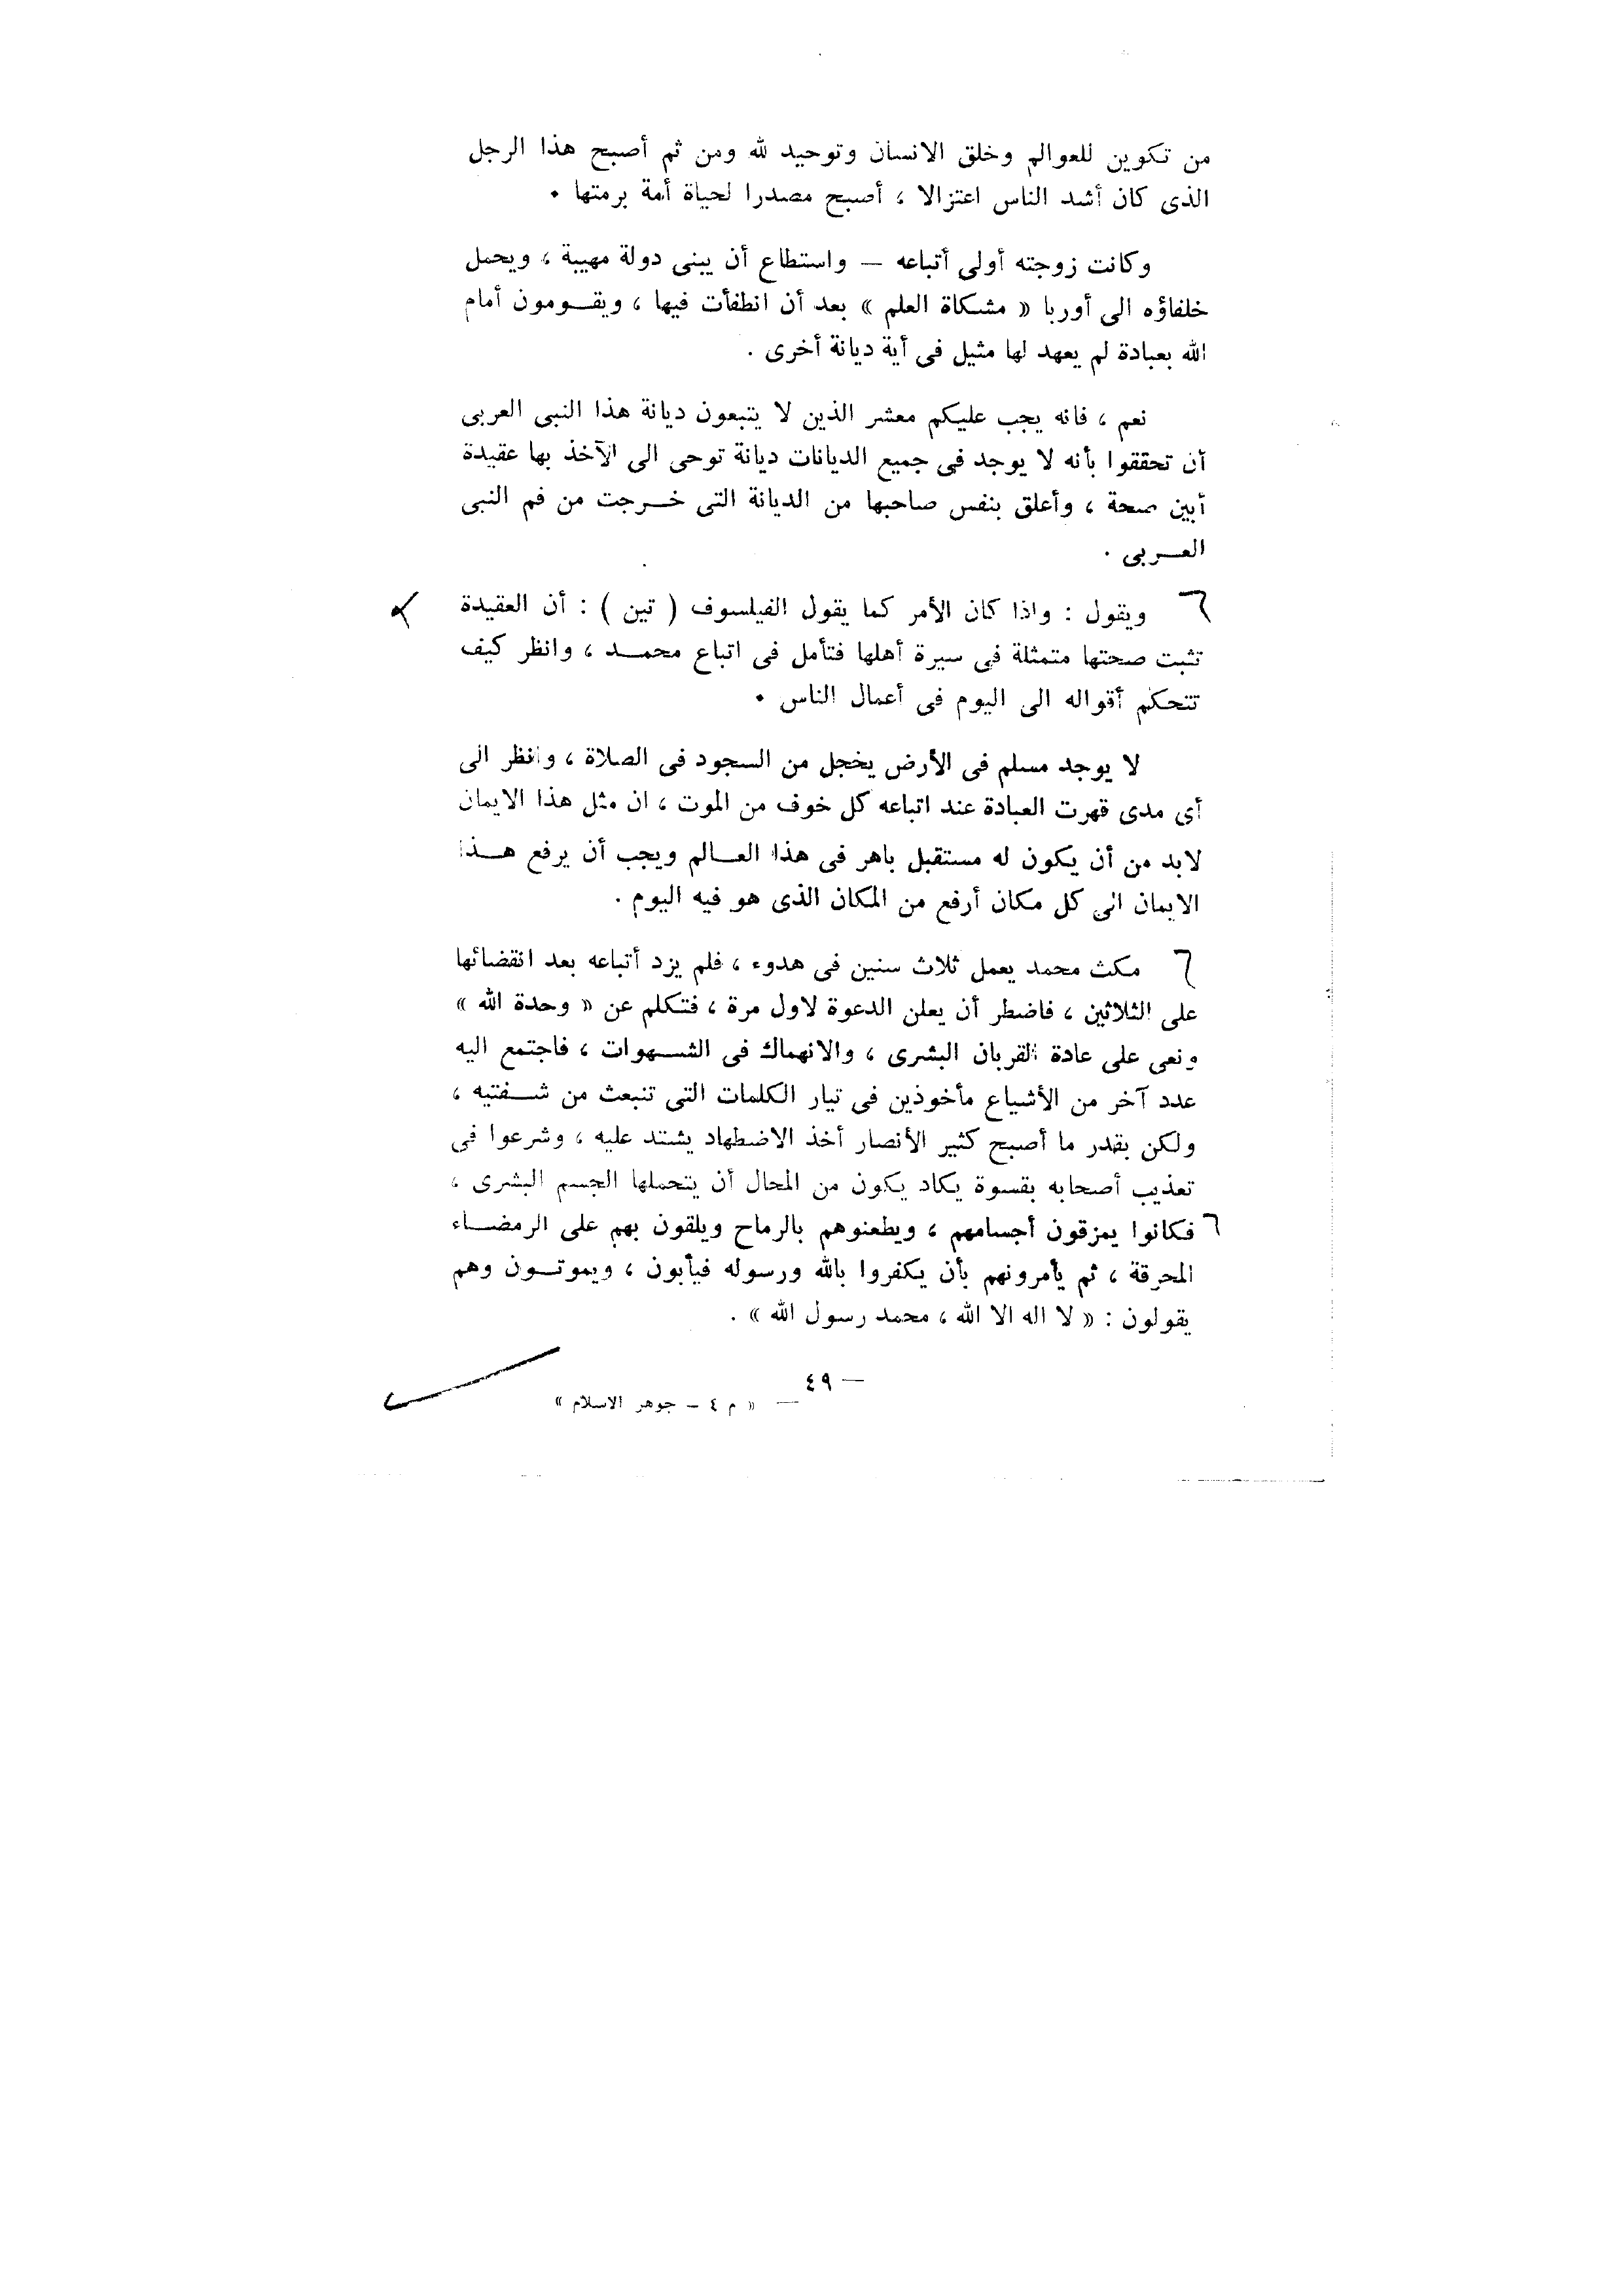 من تكوين للعوالم وخلق الانسان وتوحيد لله ومن ثم أصبح هذا الرجل
الذى كان أشد الناس اعتزالا ، أصبح مصدرا لحياة أمة برمتها .
وكانت زوجته أولى أتباعه — واستطاع أن يبنى دولة مهيبة ، ويحمل
خلفاؤه الى أوربا « مشكاة العلم » بعد أن انطفأت فيها ، ويقومون أمام
الله بعبادة لم يعهد لها مثيل فى أية ديانة أخرى .
نعم ، فانه يجب عليكم معشر الذين لا يتبعون ديانة هذا النبى العربى
أن تحققوا بأنه لا يوجد فى جميع الديانات ديانة توحى الى الآخذ بها عقيدة
أبين صحة ، وأعلق بنفس صاحبها من الديانة التى خرجت من فم النبى
العربى .
ويقول : واذا كان الأمر كما يقول الفيلسوف ( تين ) : أن العقيدة
تثبت صحتها متمثلة فى سيرة أهلها فتأمل فى اتباع محمد ، وانظر كيف
تتحكم أقواله الى اليوم فى أعمال الناس .
لا يوجد مسلم فى الأرض يخجل من السجود فى الصلاة ، وانظر الى
أى مدى قهرت العبادة عند اتباعه كل خوف من الموت ، ان مثل هذا الايمان
لابد من أن يكون له مستقبل باهر فى هذا العالم ويجب أن يرفع هذا
الايمان الى كل مكان أرفع من المكان الذى هو فيه اليوم .
مكث محمد يعمل ثلاث سنين فى هدوء ، فلم يزد أتباعه بعد انقضائها
على الثلاثين ، فاضطر أن يعلن الدعوة لاول مرة ، فتكلم عن « وحدة الله »
ونعى على عادة القربان البشرى ، والانهماك فى الشهوات ، فاجتمع اليه
عدد آخر من الأشياع مأخوذين فى تيار الكلمات التى تنبعث من شفتيه ،
ولكن بقدر ما أصبح كثير الأنصار أخذ الاضطهاد يشتد عليه ، وشرعوا فى
تعذيب أصحابه بقسوة يكاد يكون من المحال أن يتحملها الجسم البشرى ،
فكانوا يمزقون أجسامهم ، ويطعنوهم بالرماح ويلقون بهم على الرمضاء
المحرقة ، ثم يأمرونهم بأن يكفروا بالله ورسوله فيأبون ، ويموتون وهم
يقولون : « لا اله الا الله ، محمد رسول الله » .
— ٤٩
— « م ٤ – جوهر الاسلام »